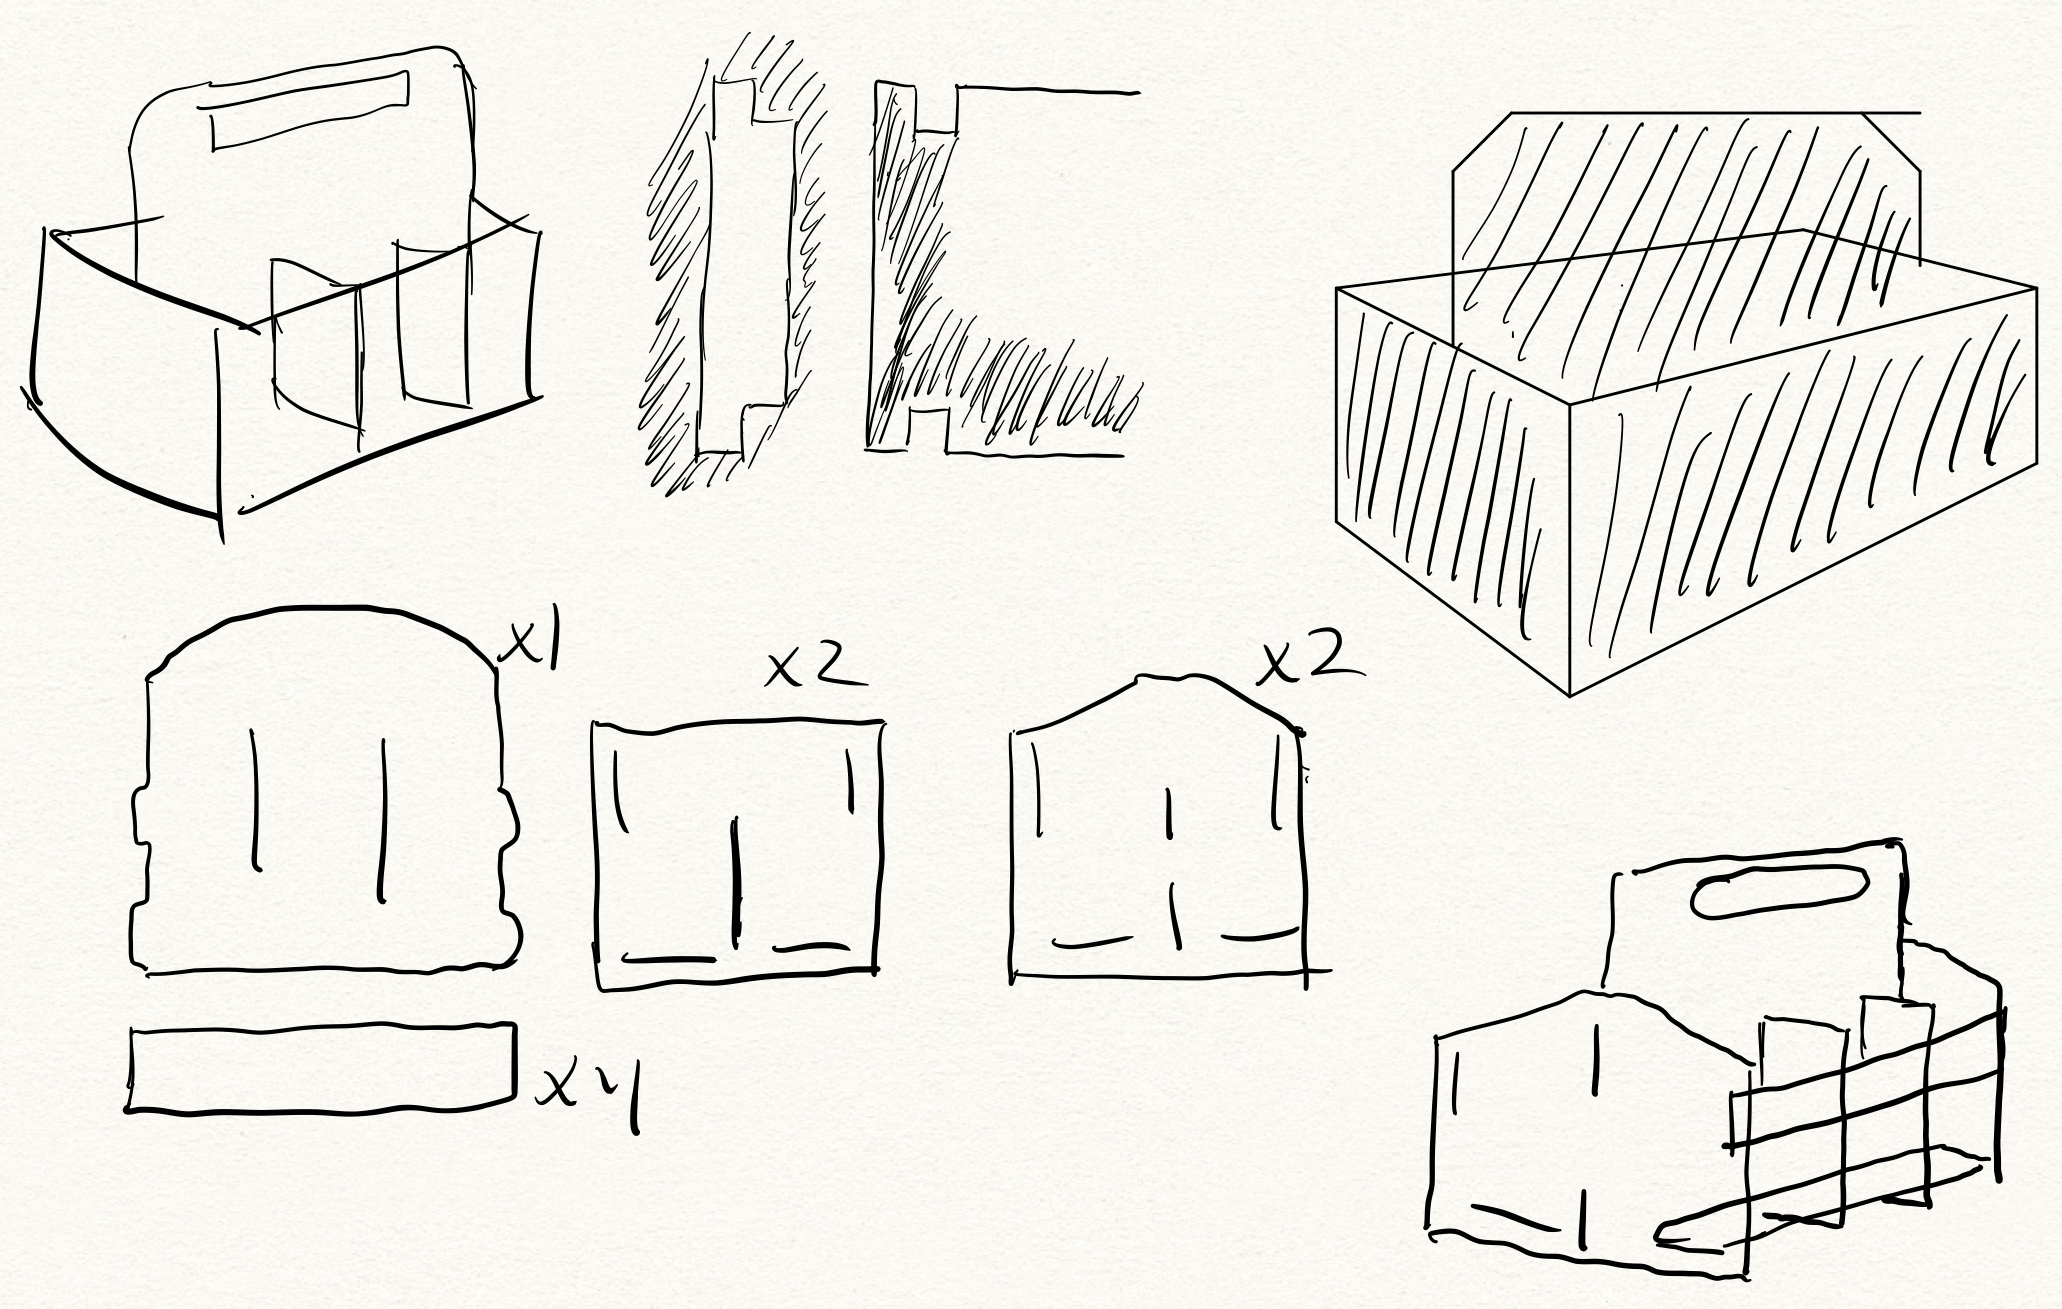 x1
x2
x2
x4